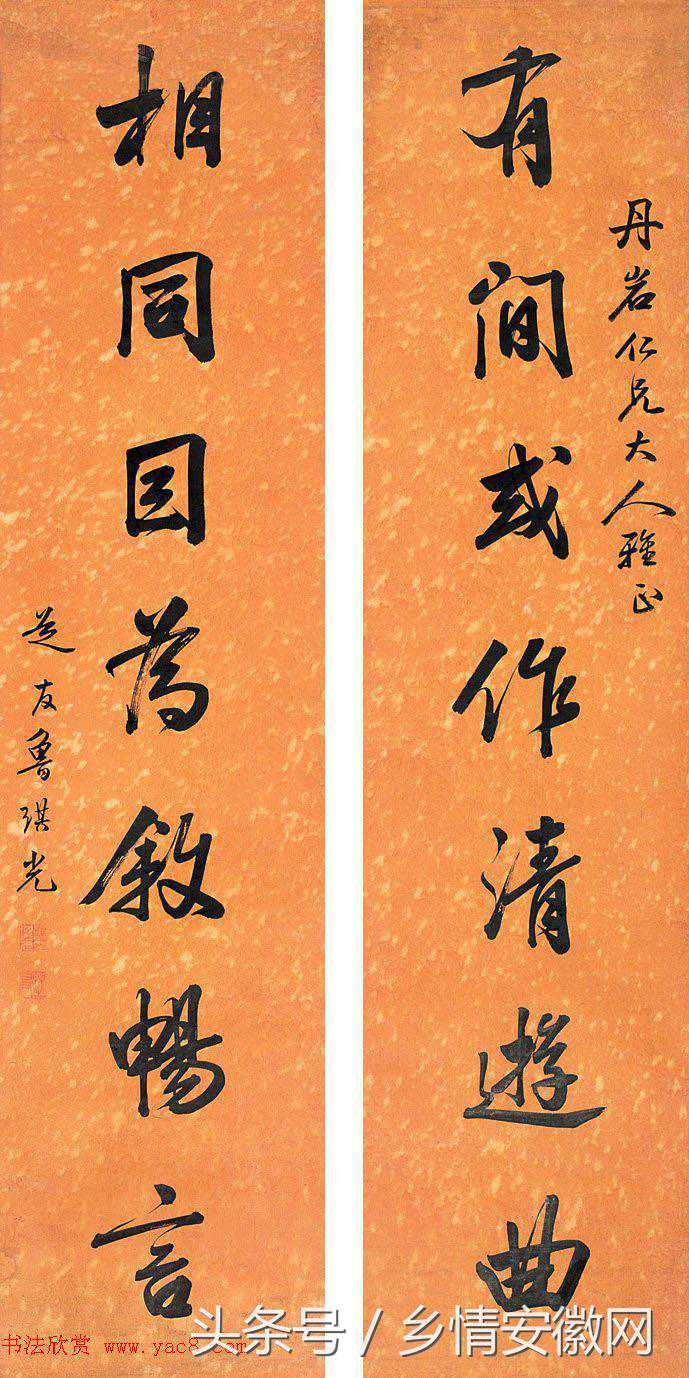 丹岩仁兄大人雅正
有間或作清遊曲
相同因為敘暢言
芝友魯琪光
书法欣赏 www.yac8.com
头条号 / 乡情安徽网